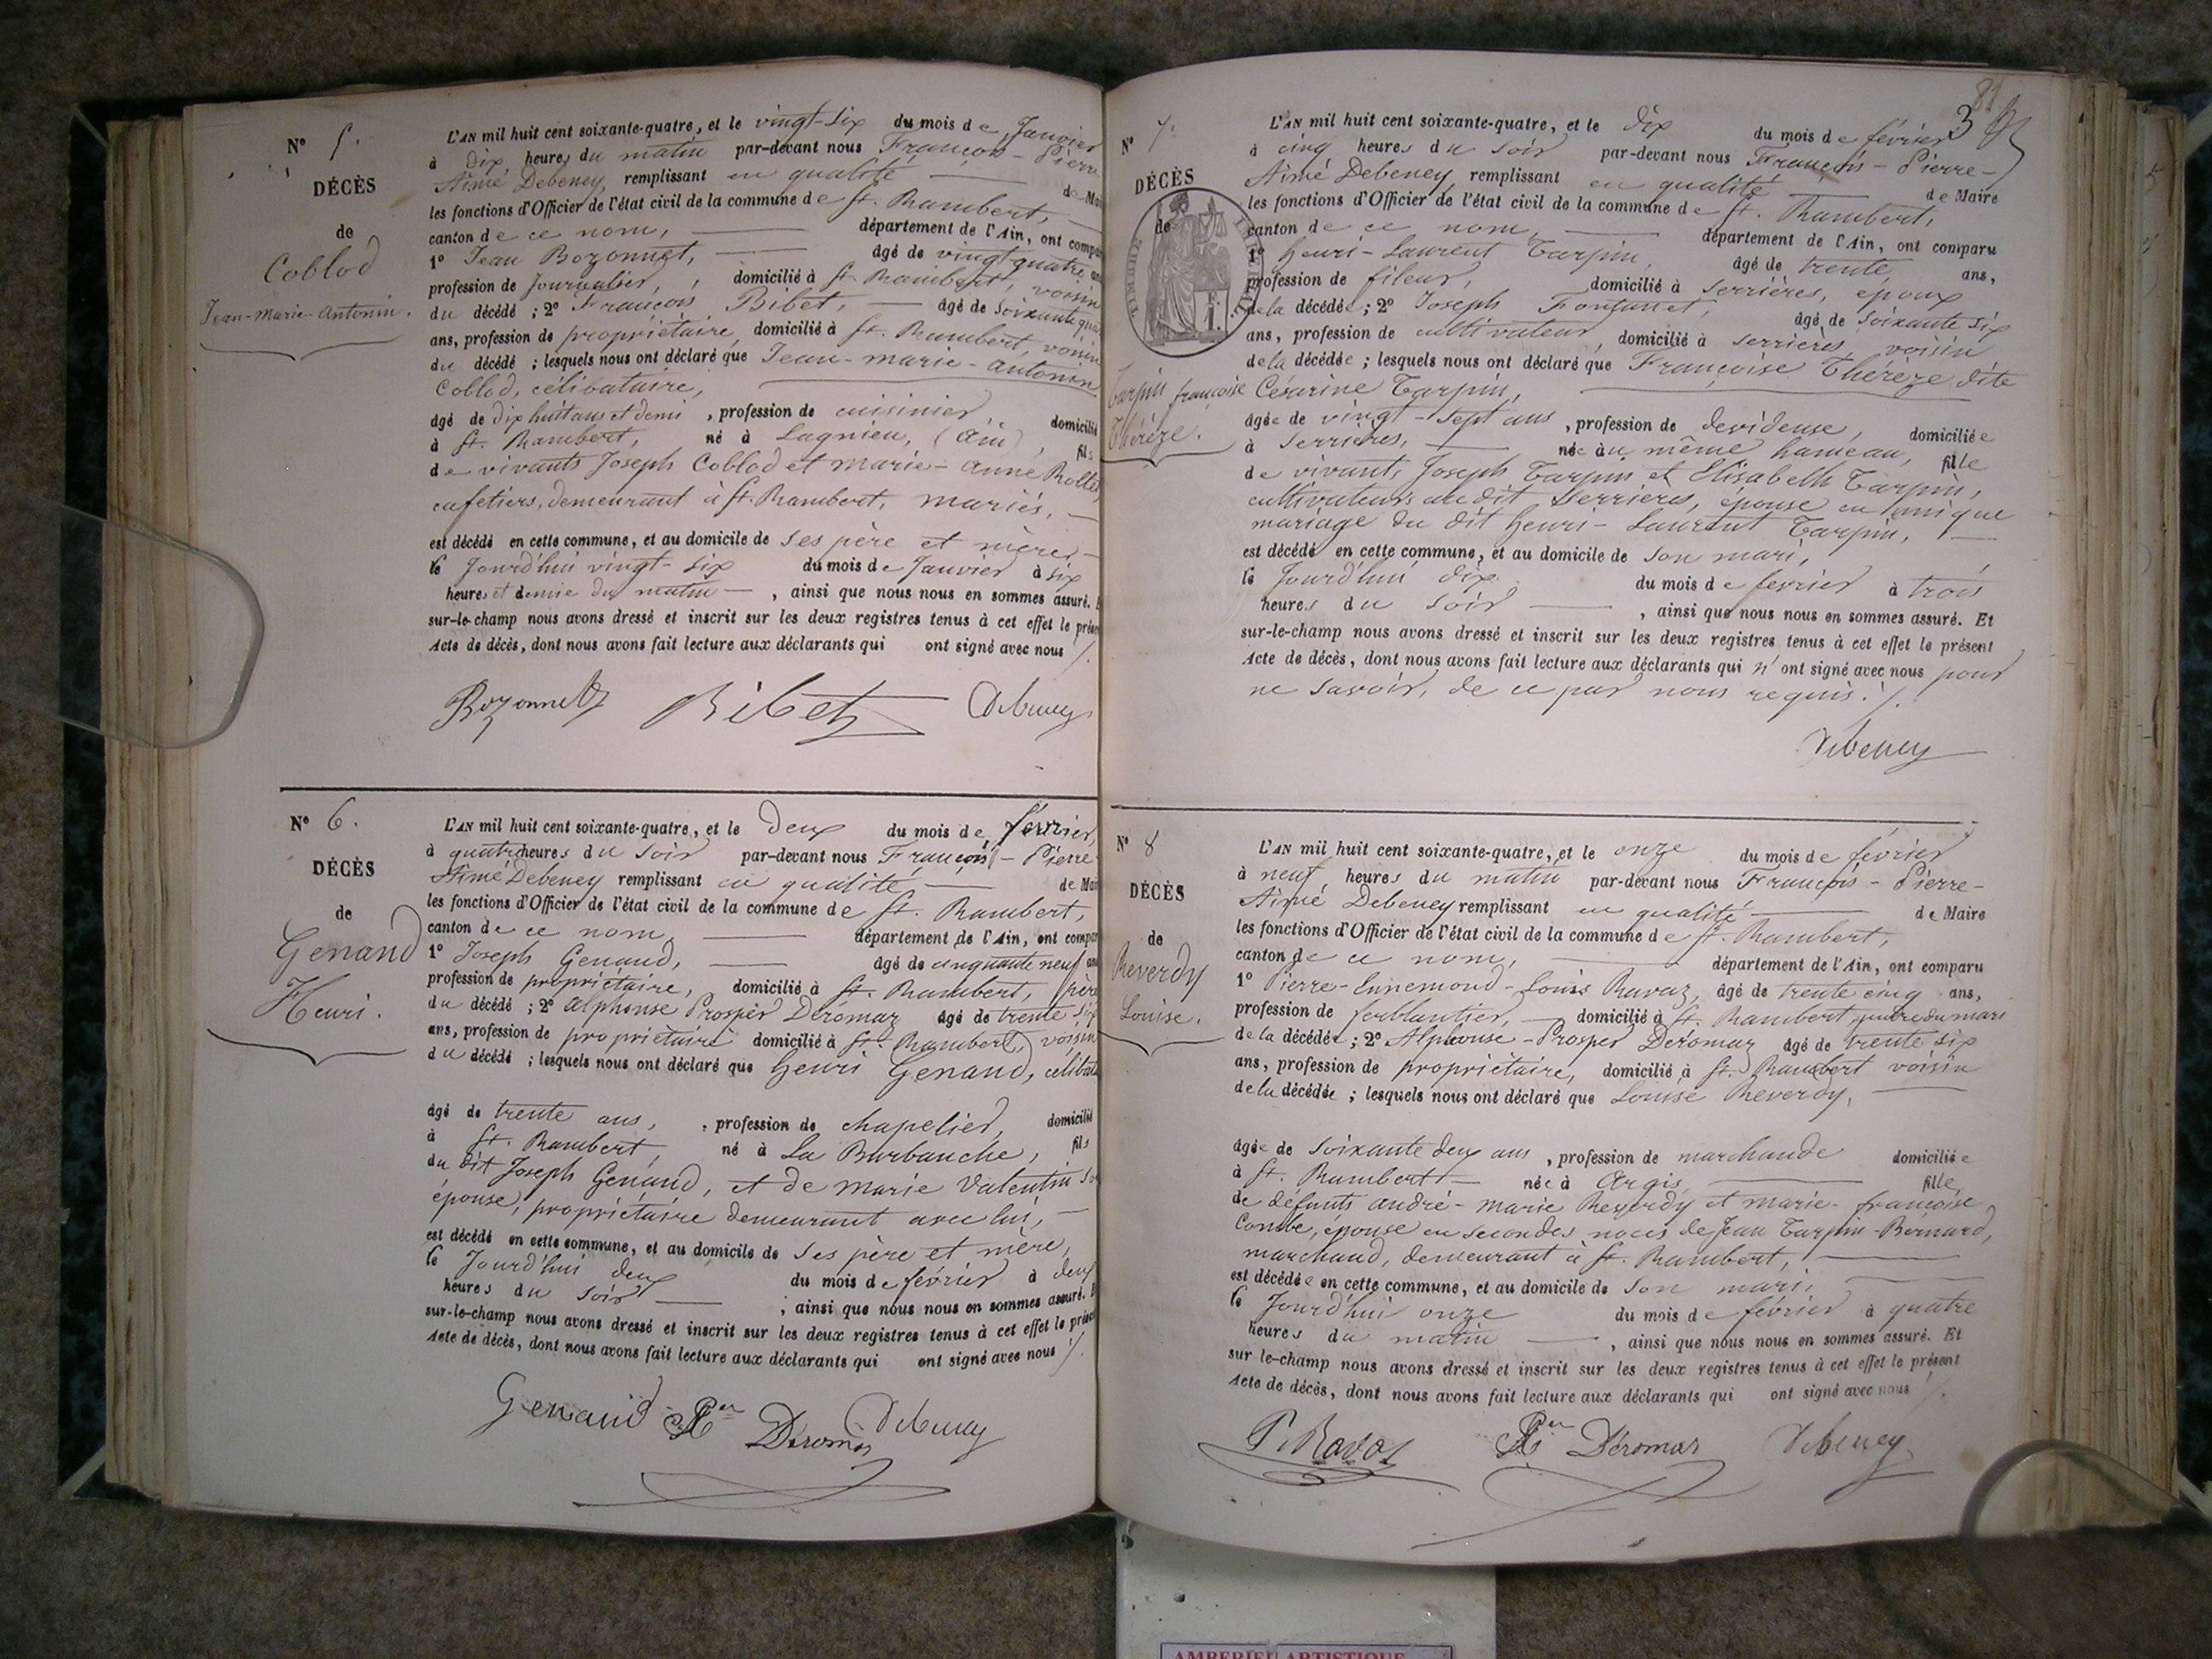 N° 5.
DÉCÈS
de
Coblod
Jean-Marie-Antonin.
L'AN mil huit cent soixante-quatre, et le vingt-six du mois de Janvier
à dix heures du matin par-devant nous François-Pierre
Aimé Debeney, remplissant en qualité de Mai
les fonctions d'Officier de l'état civil de la commune de St. Rambert,
canton de ce nom, département de l'Ain, ont compa
1° Jean Bozonnet, âgé de vingt quatre an
profession de Journalier, domicilié à St. Rambert, voisin
du décédé ; 2° François Bibet, âgé de soixante qua
ans, profession de propriétaire, domicilié à St. Rambert, voisin
du décédé ; lesquels nous ont déclaré que Jean-marie-antonin
Coblod, célibataire,
âgé de dix huit ans et demi, profession de cuisinier domicilié
à St. Rambert, né à Lagnieu, (Ain) fils
de vivants Joseph Coblod et marie-anne Rollet
cafetiers, demeurant à St. Rambert, mariés.
est décédé en cette commune, et au domicile de ses père et mère
le Jourd'hui vingt-six du mois de Janvier à six
heures et demie du matin, ainsi que nous nous en sommes assuré. E
sur-le-champ nous avons dressé et inscrit sur les deux registres tenus à cet effet le prése
Acte de décès, dont nous avons fait lecture aux déclarants qui ont signé avec nous /.
Bozonnet Bibet Debeney
N° 6.
DÉCÈS
de
Genand
Henri.
L'AN mil huit cent soixante-quatre, et le deux du mois de février,
à quatre heures du soir par-devant nous François-Pierre
Aimé Debeney remplissant en qualité de Mai
les fonctions d'Officier de l'état civil de la commune de St. Rambert,
canton de ce nom département de l'Ain, ont compar
1° Joseph Genand, âgé de cinquante neuf ans
profession de propriétaire, domicilié à St. Rambert, père
du décédé ; 2° alphonse Prosper Déromaz âgé de trente six
ans, profession de propriétaire domicilié à St. Rambert, voisin
du décédé ; lesquels nous ont déclaré que Henri Genand, céliba
âgé de trente ans, profession de chapelier, domicilié
à St. Rambert, né à La Burbanche, fils
du dit Joseph Genand, et de marie Valentin so
épouse, propriétaire demeurant avec lui,
est décédé en cette commune, et au domicile de ses père et mère,
le Jourd'hui deux du mois de février à deux
heures du soir ; ainsi que nous nous en sommes assuré. E
sur-le-champ nous avons dressé et inscrit sur les deux registres tenus à cet effet le présent
Acte de décès, dont nous avons fait lecture aux déclarants qui ont signé avec nous /.
Genand Déromaz Debeney
81
3
N° 7.
DÉCÈS
de
TIMBRE IMPERIAL
Tarpin françoise
Thérèze.
L'AN mil huit cent soixante-quatre, et le dix du mois de février
à cinq heures du soir par-devant nous François-Pierre-
Aimé Debeney, remplissant en qualité de Maire
les fonctions d'Officier de l'état civil de la commune de St. Rambert,
canton de ce nom, département de l'Ain, ont comparu
1° Henri-Laurent Tarpin, âgé de trente ans,
profession de fileur, domicilié à serrières, époux
de la décédée ; 2° Joseph Fontanet, âgé de soixante six
ans, profession de cultivateur, domicilié à serrières voisin
de la décédée ; lesquels nous ont déclaré que Françoise Thérèze dite
Césarine Tarpin,
âgée de vingt-sept ans, profession de dévideuse, domiciliée
à serrières, née au même hameau, fille
de vivants Joseph Tarpin et Elisabeth Tarpin,
cultivateurs au dit serrières, épouse en unique
mariage du dit henri-Laurent Tarpin,
est décédé en cette commune, et au domicile de son mari,
le Jourd'hui dix du mois de février à trois
heures du soir, ainsi que nous nous en sommes assuré. Et
sur-le-champ nous avons dressé et inscrit sur les deux registres tenus à cet effet le présent
Acte de décès, dont nous avons fait lecture aux déclarants qui n'ont signé avec nous pour
ne savoir, de ce par nous requis. /.
Debeney
N° 8
DÉCÈS
de
Reverdy
Louise.
L'AN mil huit cent soixante-quatre, et le onze du mois de février
à neuf heures du matin par-devant nous François-Pierre-
Aimé Debeney remplissant en qualité de Maire
les fonctions d'Officier de l'état civil de la commune de St. Rambert,
canton de ce nom, département de l'Ain, ont comparu
1° Pierre-Ennemond-Louis Ravaz, âgé de trente cinq ans,
profession de ferblantier, domicilié à St. Rambert, gendre du mari
de la décédée ; 2° Alphonse-Prosper Déromaz âgé de trente six
ans, profession de propriétaire, domicilié à St. Rambert voisin
de la décédée ; lesquels nous ont déclaré que Louise Reverdy,
âgée de soixante deux ans, profession de marchande domiciliée
à St. Rambert née à Argis, fille
de défunts andré-marie Reverdy et marie-françoise
Combe, épouse en secondes noces de Jean Tarpin-Bernard,
marchand, demeurant à St. Rambert,
est décédée en cette commune, et au domicile de son mari,
le Jourd'hui onze du mois de février à quatre
heures du matin, ainsi que nous nous en sommes assuré. Et
sur le-champ nous avons dressé et inscrit sur les deux registres tenus à cet effet le présent
Acte de décès, dont nous avons fait lecture aux déclarants qui ont signé avec nous /.
P. Ravaz Déromaz Debeney
AMBERIEU ARTISTIQUE